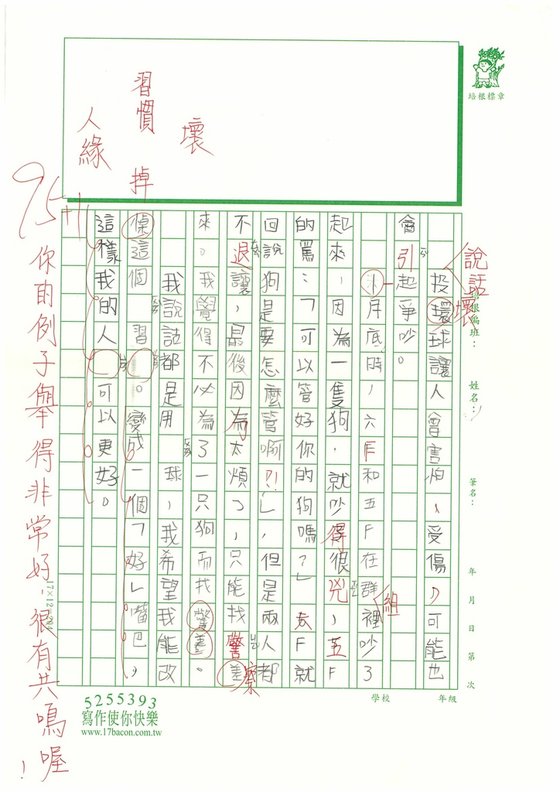 培根標章
習慣
壞
掉
人緣
說話
投壞球讓人會害怕、受傷,可能也
會引起爭吵。
月底時,六F和五F在群組裡吵了
起來,因為一隻狗,就吵得很兇,五F
的罵:「可以管好你的狗嗎?」六F就
回說狗是要怎麼管啊?!」,但是兩人都
不退讓,最後因為太煩了,只能找警察
來。我覺得不必為了一只狗而找警察。
我說話都是用球,我希望我能改
這個習。變成一個「好」嘴巴,
這樣我的人可以更好。
95
你的例子舉得非常好,很有共鳴喔!
班級:
姓名:
筆名:
年 月 日 第 次
學校
年級
17×12
5255393
寫作使你快樂
www.17bacon.com.tw